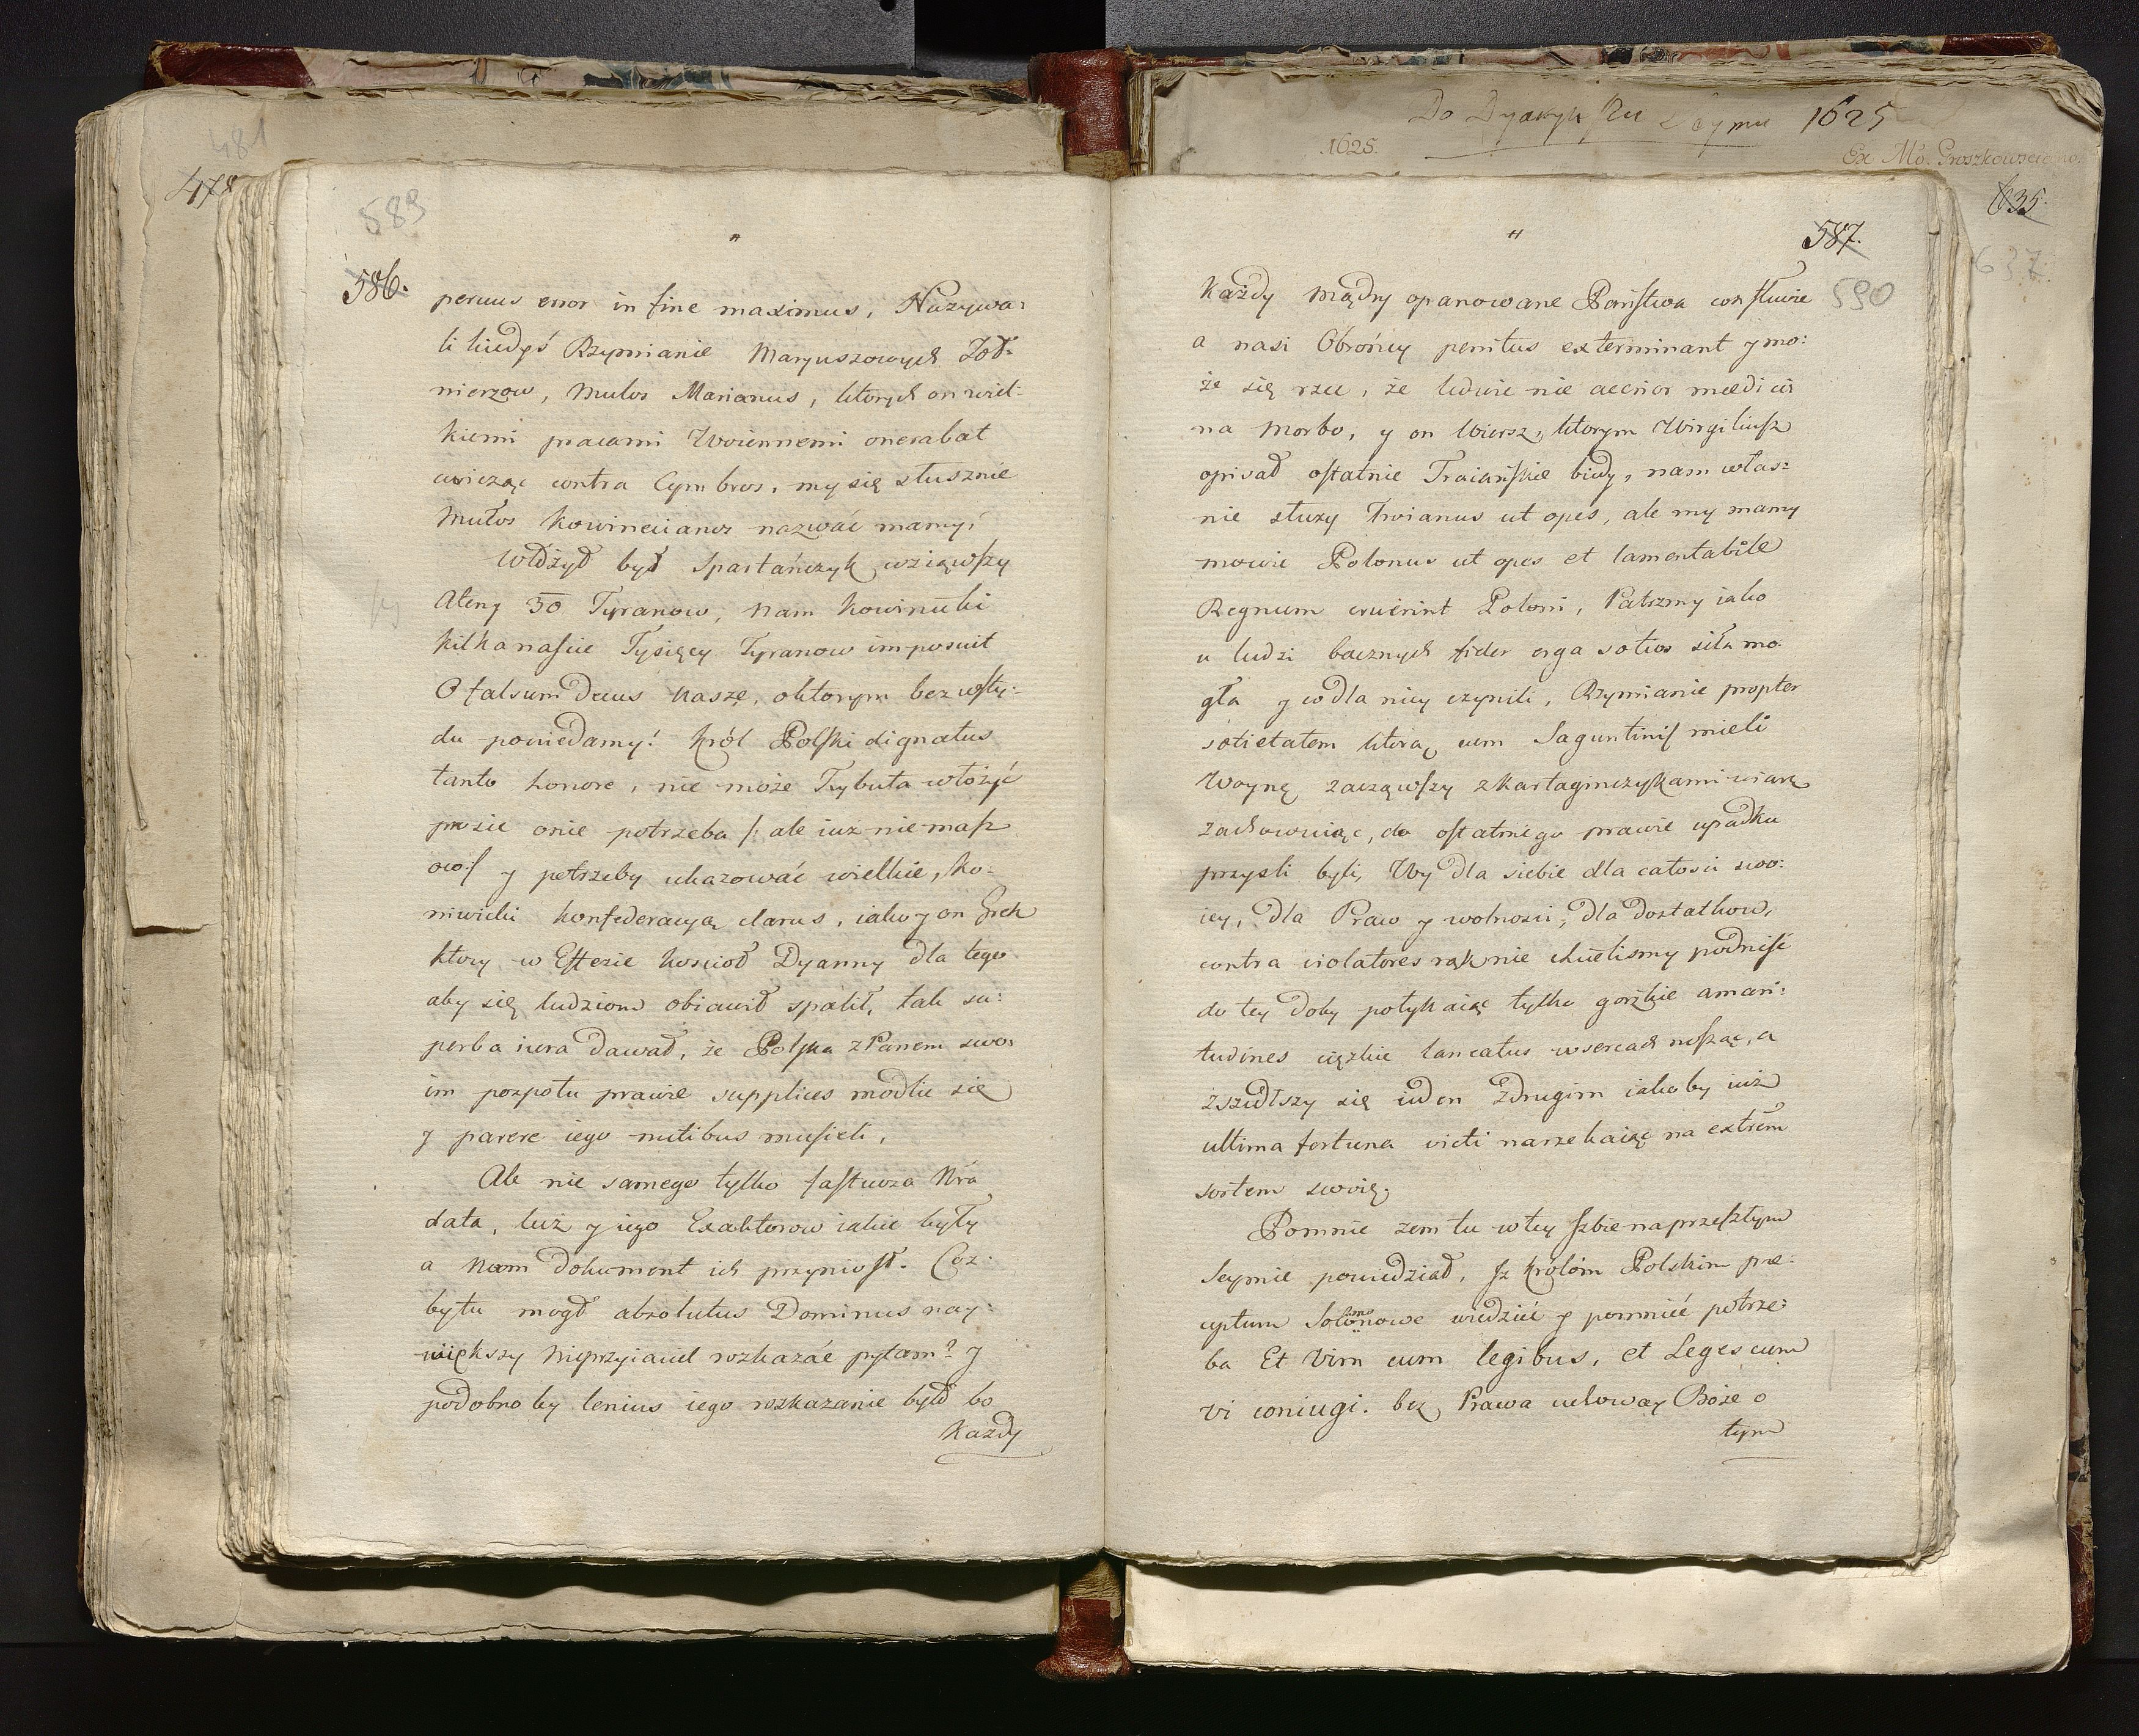 481
478
589
586.
pervus error in fine maximus, Nazywa:
li kiedyś Rzymianie Maryuszowych Żoł:
nierzow, Mulos Marianus, ktorych on wiel:
kiemi pracami Woiennemi onerabat
cwicząc contra Cymbros, my się słusznie
Mułos Kowineciianos nazwać mamy,
Włożył był Spartańczyk wziąwszy
Ateny 30 Tyranow, nam Kowinicki
kilkanaście Tysięcy Tyranow imposuit
O falsum Decus nasze, o ktorym bez wsty:
du powiedamy! Król Polski dignatus
tanto honore, nie może Trybuta włożyć
prosie onie potrzeba /: ale iuż nie masz
y potrzeby ukazować wielkie, Ko:
niwicki Konfederacyą clarus, iako y on Grek
ktory w Effezie kościoł Dyanny dla tego
aby się ludziom obiawił spalił, tak su:
perba iura dawał, że Polska z Panem swo:
im pospołu prawie supplices modlić się
y parere iego nutibus musieli,
Ale nie samego tylko fastuoza
data, luż y iego Exaktorow iakie były
a nam dokument ich przyniosł. Coz:
by tu mogł absolutus Dominus nay:
większy nieprzyiaciel rozkazać pytam? y
podobno by lenius iego rozkazanie było bo
Każdy
Do Dyaryuszu Seymu 1625
1625.
Ex Mo. Proszkowsciano.
635.
637.
587.
590
Każdy mądry opanowane Państwa
a nasi Obrońcy penitus exterminant y mo:
że się rzec, że ludwie nie aecrior medici:
na Morbo, y on Wiersz, ktorym Wirgiliusz
opisał ostatnie Traiańskie biedy, nam włas:
nie służy Troianus ut opes, ale my mamy
mowić Polonus ut opes et lamentabile
Regnum eruerint Poloni, Patrzmy iako
u ludzi bacznych fides erga sotios siła mo:
gła y co dla niey czynili, Rzymianie propter
sotietatem ktorą cum Saguntinis mieli
Woynę zacząwszy z Kartaginczykami wiarę
zachowuiąc, do ostatniego prawie upadku
przyszli byli, My dla siebie dla całosci swo:
iey, dla Praw y wolnosci, dla dostatkow,
contra violatores rąk nie chcielismy podnieść
do tey doby połykaiąc tylko gorzkie amari:
tudines ciężkie w sercach nosząc, a
zszedłszy się ieden z drugim iakoby iuż
ultima fortuna victi narzekaiąc na extrem
sortem swoię.
Pomnie zem tu w tey Izbie na przeszłym
Seymie powiedział, Iz Krolom Polskim pre:
ceptum Solonowe wiedzieć y pomnieć potrze:
ba Et Vim cum legibus, et Leges cum
vi coniugi. bez Prawa uchoway Boże o
tym